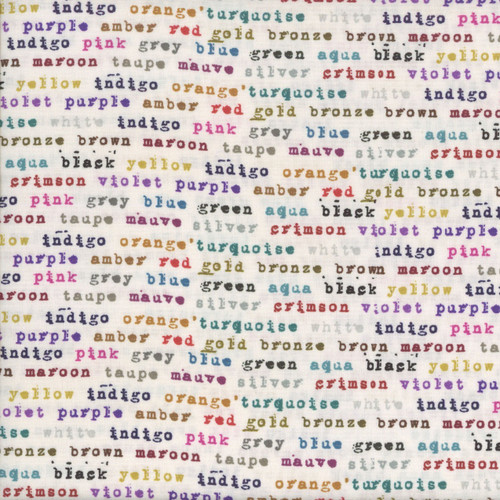 yellow indigo orange'turquoise white indigo pink
purple amber red gold bronze brown maroon ta
indigo pink grey blue green aqua black yellow
wn maroon taupe mauve silver crimson violet purple
k yellow indigo orange'turquoise white indigo
iolet purple amber red gold bronze brown maroon
oise white indigo pink grey blue green aqua black
bronze brown maroon taupe mauve silver crimson
aqua black yellow indigo orange'turquoise white
crimson violet purple amber red gold bronze
go pink grey blue green aqua black yellow indi
maroon taupe mauve silver crimson violet pu
yellow indigo orange'turquoise white indigo pink
purple amber red gold bronze brown maroon ta
indigo pink grey blue green aqua black yell
aroon taupe mauve silver crimson violet purp
yellow indigo orange'turquoise white indigo
t purple amber red gold bronze brown maroon
white indigo pink grey blue green aqua black
wn maroon taupe mauve silver crimson violet
yellow indigo orange'turquoise white
olet purple amber red gold bronze brown
white indigo pink grey blue green aqua black
brown maroon taupe mauve silver crimson
aqua black yellow indigo orange'turquoise white
crimson violet purple amber red gold bronze